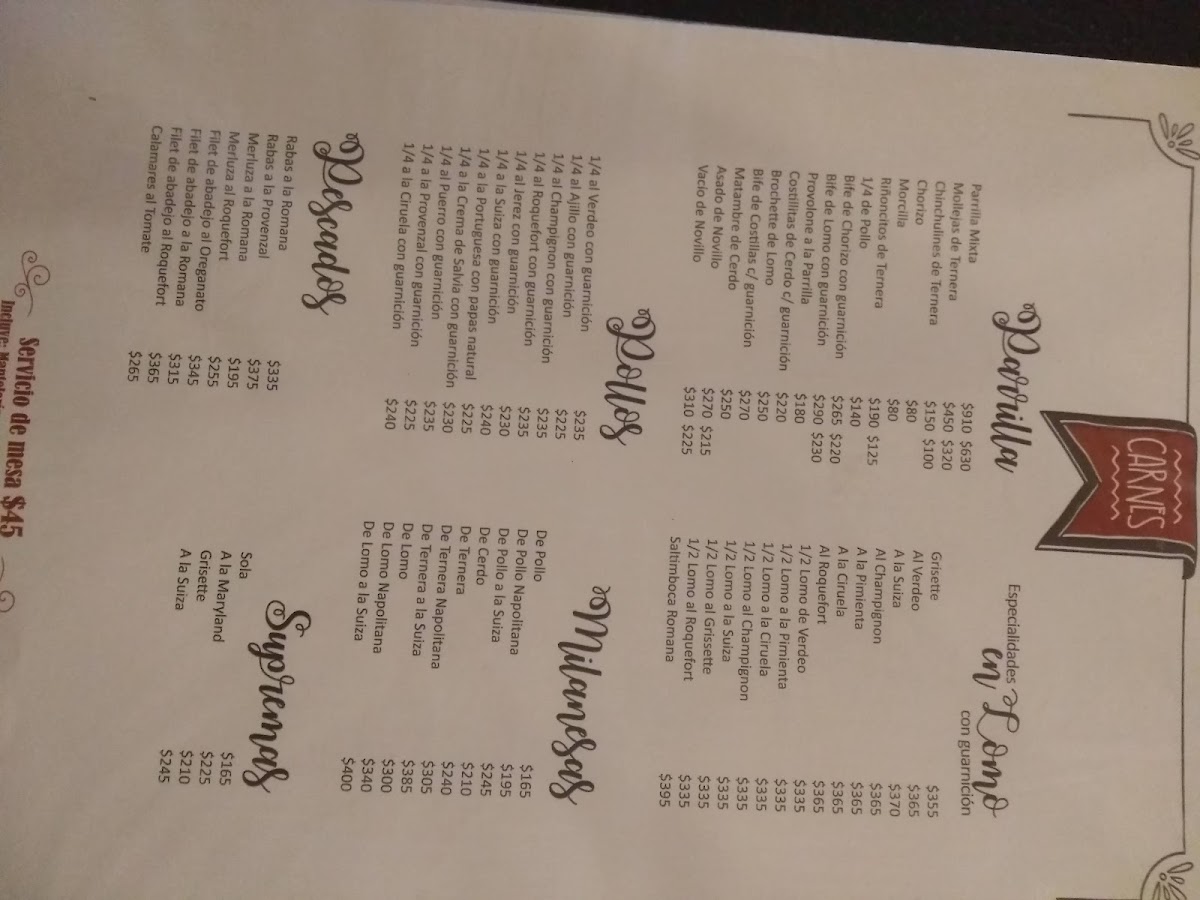 CARNES
Parrilla
Parrilla Mixta $910 $630
Mollejas de Ternera $450 $320
Chinchulines de Ternera $150 $100
Chorizo $80
Morcilla $80
Riñoncitos de Ternera $190 $125
1/4 de Pollo $140
Bife de Chorizo con guarnición $265 $220
Bife de Lomo con guarnición $290 $230
Provolone a la Parrilla $180
Costillitas de Cerdo c/ guarnición $220
Brochette de Lomo $250
Bife de Costillas c/ guarnición $270
Matambre de Cerdo $250
Asado de Novillo $270 $215
Vacio de Novillo $310 $225
Especialidades
en Lomo
con guarnición
Grisette $355
Al Verdeo $365
A la Suiza $370
Al Champignon $365
A la Pimienta $365
A la Ciruela $365
Al Roquefort $365
1/2 Lomo de Verdeo $335
1/2 Lomo a la Pimienta $335
1/2 Lomo a la Ciruela $335
1/2 Lomo al Champignon $335
1/2 Lomo a la Suiza $335
1/2 Lomo al Grissette $335
1/2 Lomo al Roquefort $335
Saltimboca Romana $395
Pollos
1/4 al Verdeo con guarnición $235
1/4 al Ajillo con guarnición $225
1/4 al Champignon con guarnición $235
1/4 al Roquefort con guarnición $235
1/4 al Jerez con guarnición $230
1/4 a la Suiza con guarnición $240
1/4 a la Portuguesa con papas natural $225
1/4 a la Crema de Salvia con guarnición $230
1/4 al Puerro con guarnición $235
1/4 a la Provenzal con guarnición $225
1/4 a la Ciruela con guarnición $240
Milanesas
De Pollo $165
De Pollo Napolitana $195
De Pollo a la Suiza $245
De Cerdo $210
De Ternera $240
De Ternera Napolitana $305
De Ternera a la Suiza $385
De Lomo $300
De Lomo Napolitana $340
De Lomo a la Suiza $400
Pescados
Rabas a la Romana $335
Rabas a la Provenzal $375
Merluza a la Romana $195
Merluza al Roquefort $255
Filet de abadejo al Oreganato $345
Filet de abadejo a la Romana $315
Filet de abadejo al Roquefort $365
Calamares al Tomate $265
Supremas
Sola $165
A la Maryland $225
Grisette $210
A la Suiza $245
Servicio de mesa $45
Incluye: